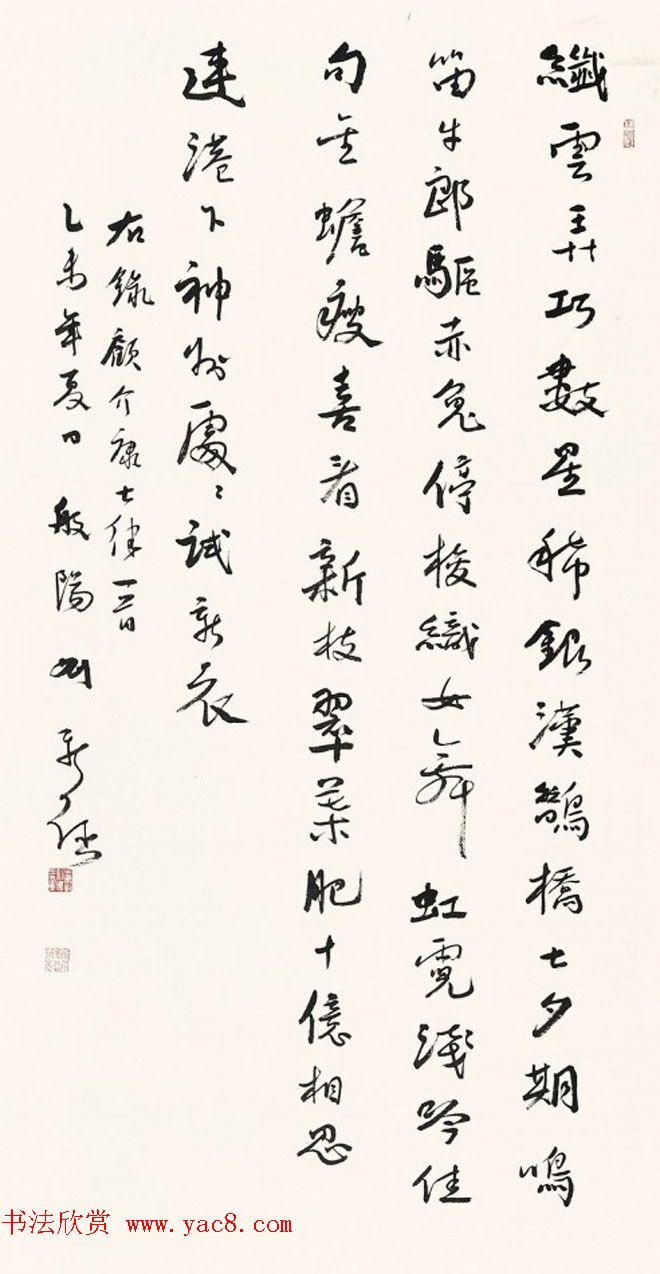 纖雲弄巧數星稀銀漢鵲橋七夕期鳴
笛牛郎驅赤兔停梭織女舞虹霓淺吟佳
句金蟾瘦喜看新枝翠葉肥十億相思
連港下神州處〻試新衣
右錄顧介康七律一首
乙未年夏日般陽
书法欣赏 www.yac8.com